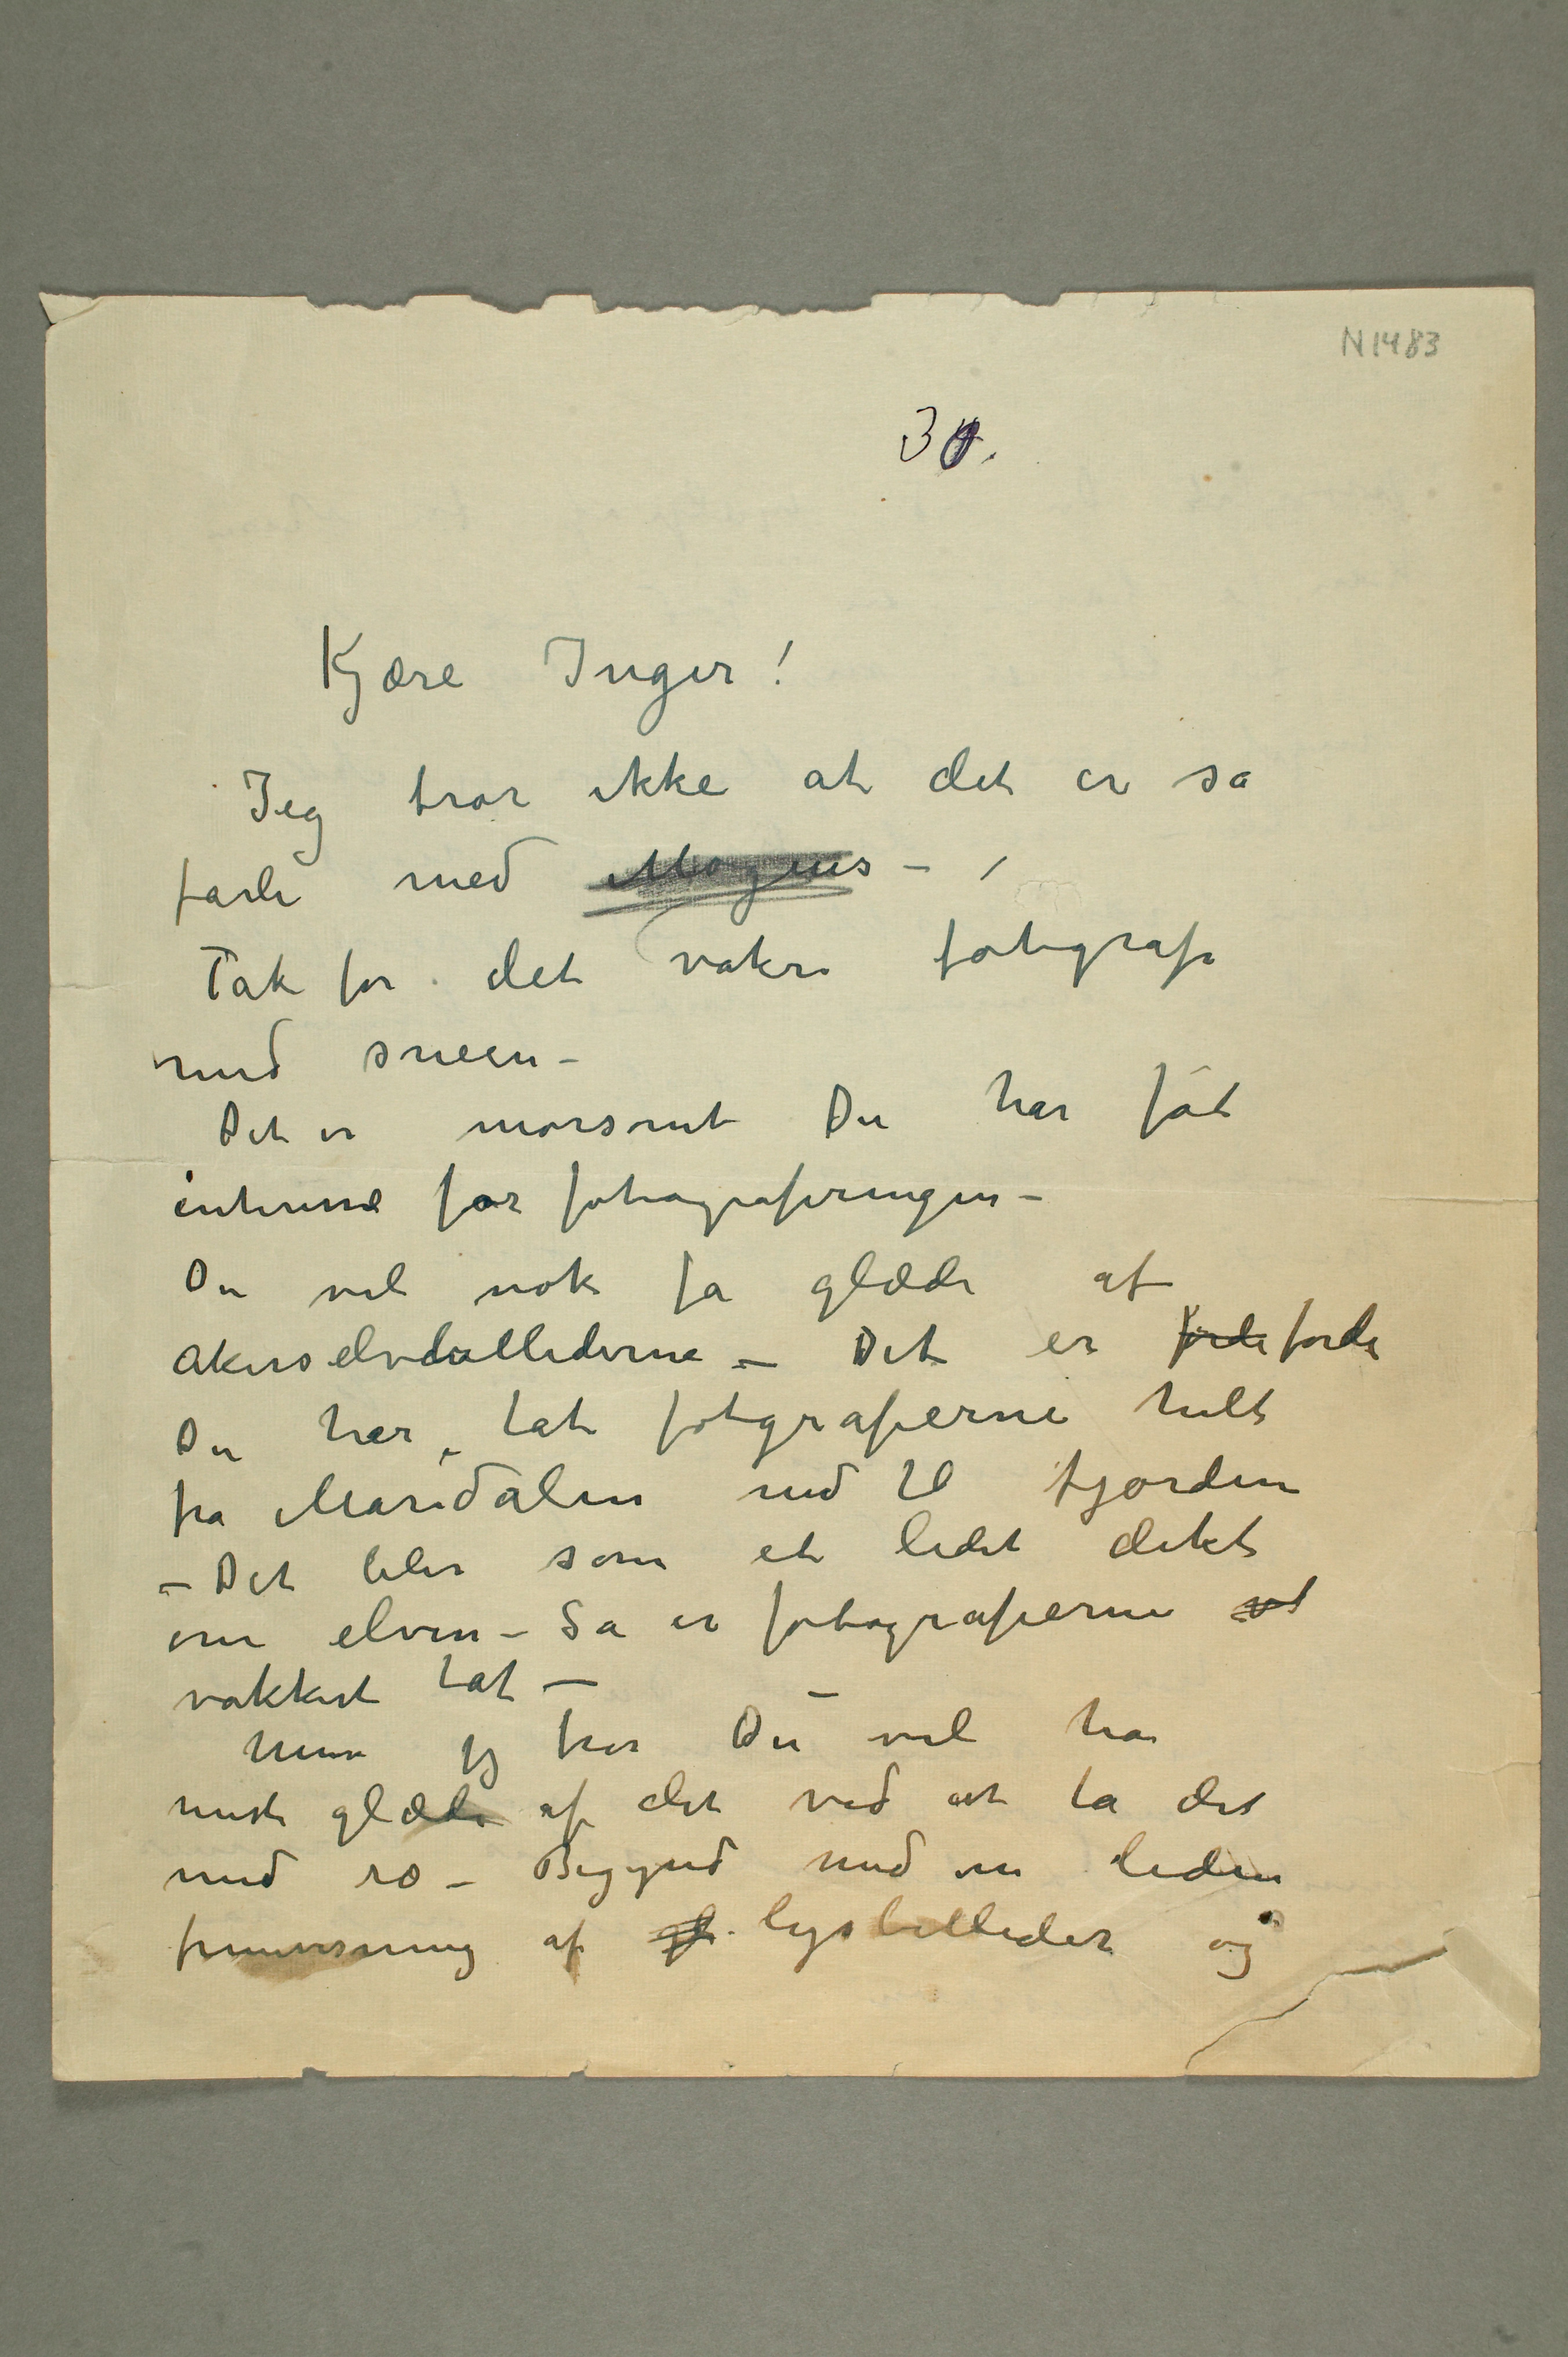 N 1483
30.
Kjære Inger!
Jeg tror ikke at det er så
farli med Mogens –
Tak for det vakre fotografi
med sneen –
Det er morsomt Du har fåt
interesse for fotograferingen –
Du vil nok få glæde af
akerselvbillederne – Det er fordi fordi
Du har tat fotgrafierne helt
fra Maridalen ned til fjorden
– Det blir som et lidet dikt
om elven – Så er fotografierne
vakkert tat –
Men jeg tror Du vil ha
mest glæde af det ved at ta det
med ro – Begynd med en liden
fremvisning af lysbilleder og